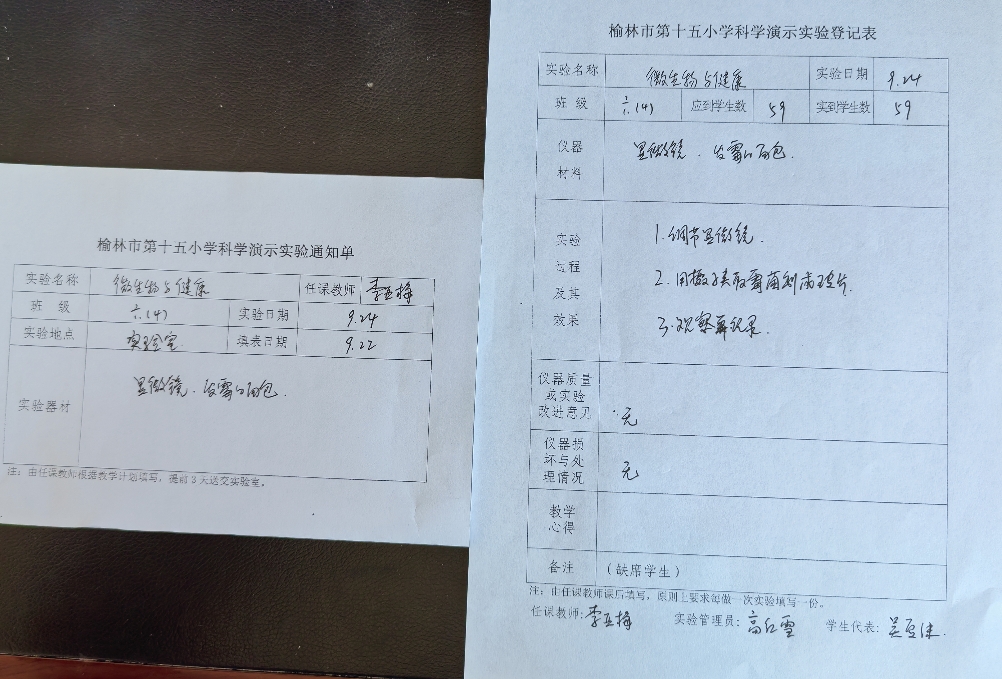 榆林市第十五小学科学演示实验通知单
实验名称 微生物与健康 任课教师 李亚梅
班 级 六(4) 实验日期 9.24
实验地点 实验室 填表日期 9.22
实验器材 显微镜、发霉的面包.
注:由任课教师根据教学计划填写,提前3天送交实验室。
榆林市第十五小学科学演示实验登记表
实验名称 微生物与健康 实验日期 9.24
班 级 六(4) 应到学生数 59 实到学生数 59
仪器
材料
显微镜、发霉的面包.
实验
过程
及其
效果
1.调节显微镜.
2.用镊子夹取霉菌制成玻片.
3.观察并纪录.
仪器质量
或实验
改进意见
无
仪器损
坏与处
理情况
无
教学
心得
备注 (缺席学生)
注:由任课教师课后填写,原则上要求每做一次实验填写一份。
任课教师:李亚梅 实验管理员:高红雪 学生代表: